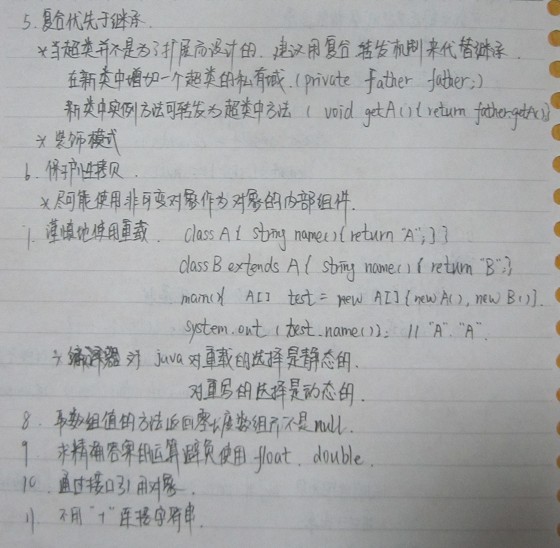 5. 复合优先于继承.
* 当超类并不是为了扩展而设计的. 建议用复合 转发机制来代替继承.
在新类中增加一个超类的私有域. (private Father father;)
新类中实例方法可转发为超类中方法 ( void getA(){return father.getA()}
* 装饰模式
6. 保护性拷贝.
* 尽可能使用非可变对象作为对象的内部组件.
7. 谨慎地使用重载. class A{ string name(){return "A";}}
class B extends A{ string name(){ return "B";}
main(){ A[] test = new A[]{new A(), new B()}.
system.out (test.name()); // "A". "A".
→ 编译器对 java 对重载的选择是静态的.
对重写的选择是动态的.
8. 零数组值的方法返回零长度数组而不是null.
9 求精确答案的运算避免使用 float. double.
10. 通过接口引用对象.
11. 不用 "+" 连接字符串.